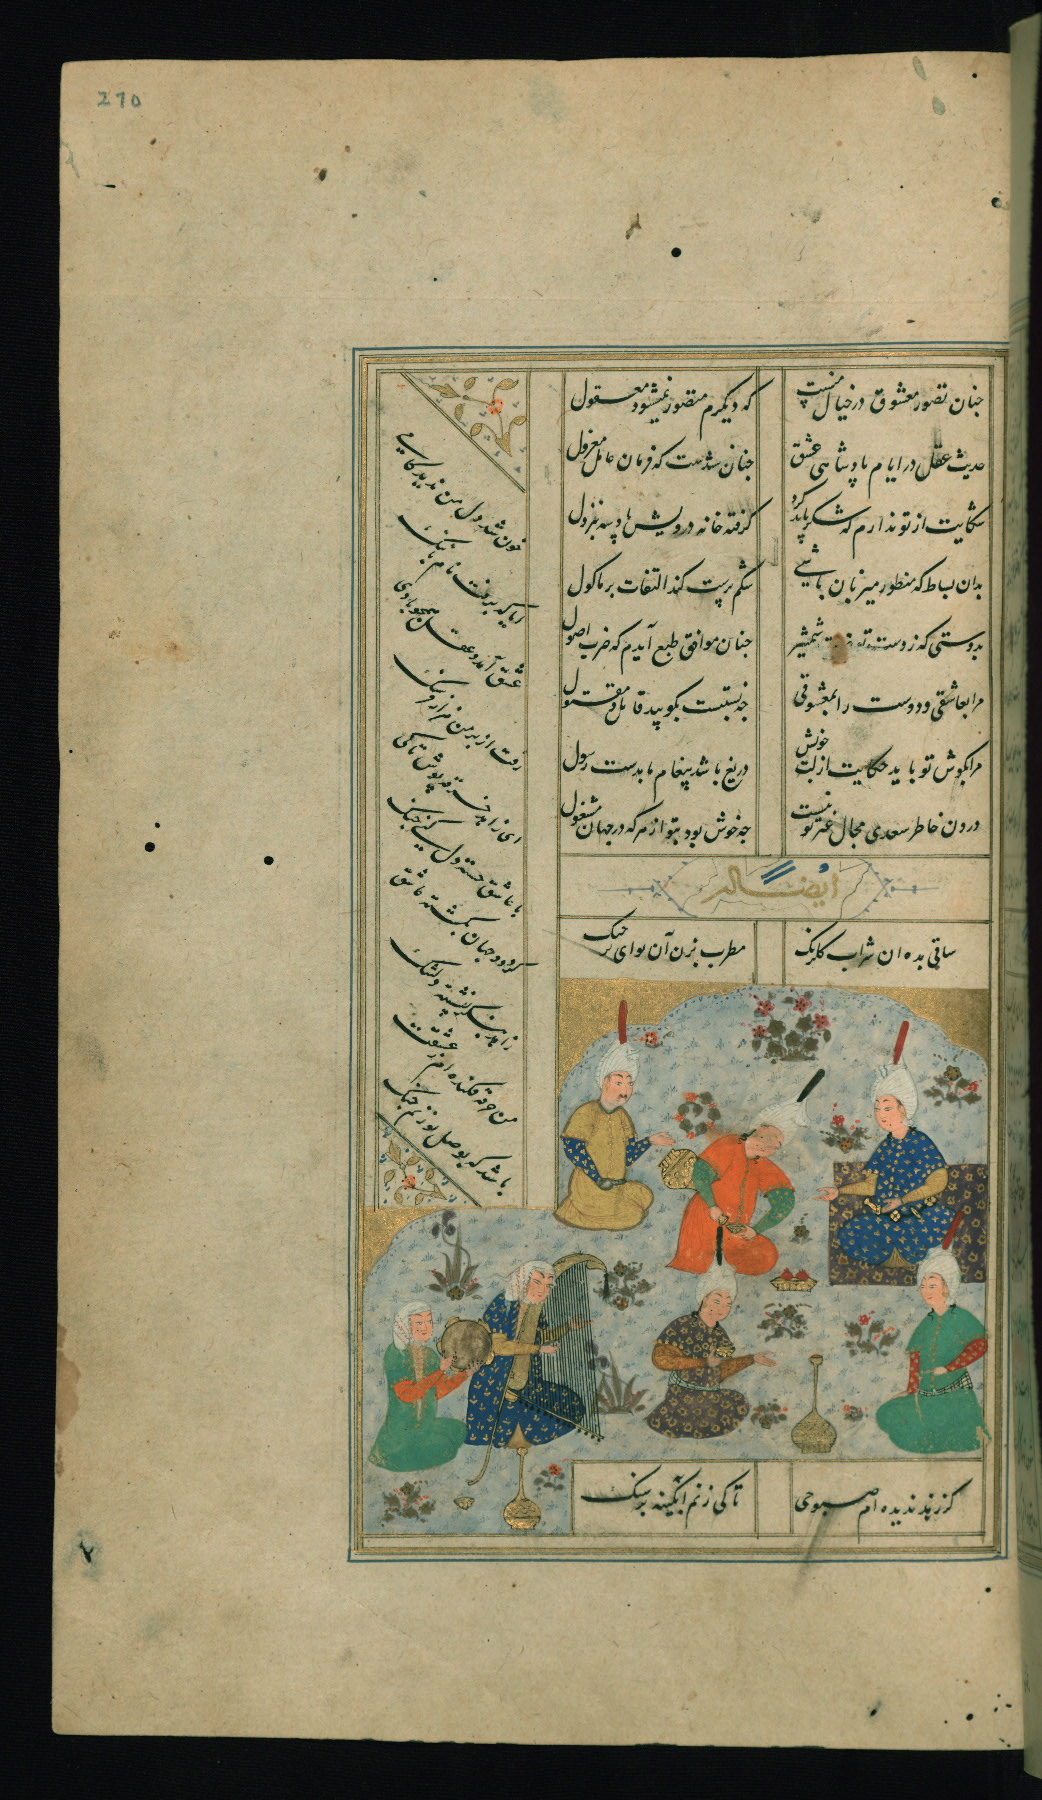 270
چنان تصور معشوق در خیال منست
که دیگرم متصور نمیشود معقول
حدیث عقل در ایام پادشاهی عشق
چنان شدست که فرمان عامل معزول
شکایت از تو ندارم که شکر باید کرد
گرفته خانه درویش پادشه بنزول
بدان سماط که منظور میزبان باشی
شکم پرست کند التفات بر ماکول
بدوستی که ز دست تو ضربت شمشیر
چنان موافق طبع آیدم که ضرب اصول
مرا بعاشقی و دوست را بمعشوقی
چه نسبتست بگویید قاتل و مقتول
مرا بگوش تو باید حکایت از لب خویش
دریغ باشد پیغام ما بدست رسول
درون خاطر سعدی مجال غیر تو نیست
چه خوش بود بتو از هر که در جهان مشغول
ایضاله
ساقی بده ان شراب گلرنگ
مطرب بزن آن نوای بر چنگ
کز زهد ندیده ام صبوحی
تا کی زنم ابگینه بر سنگ
خون شد دل من ندیده کامی
الا که برفت نام با ننگ
عشق آمد و عقل همچو بادی
رفت از بر من هزار فرسنگ
ای زاهد خرقه پوش تا کی
با عاشق خسته دل کنی جنگ
گرد دو جهان بگشته عاشق
زاهد بنگر نشسته دلتنگ
من خرقه فکنده ام ز عشقت
باشد که بوصل تو زنم چنگ